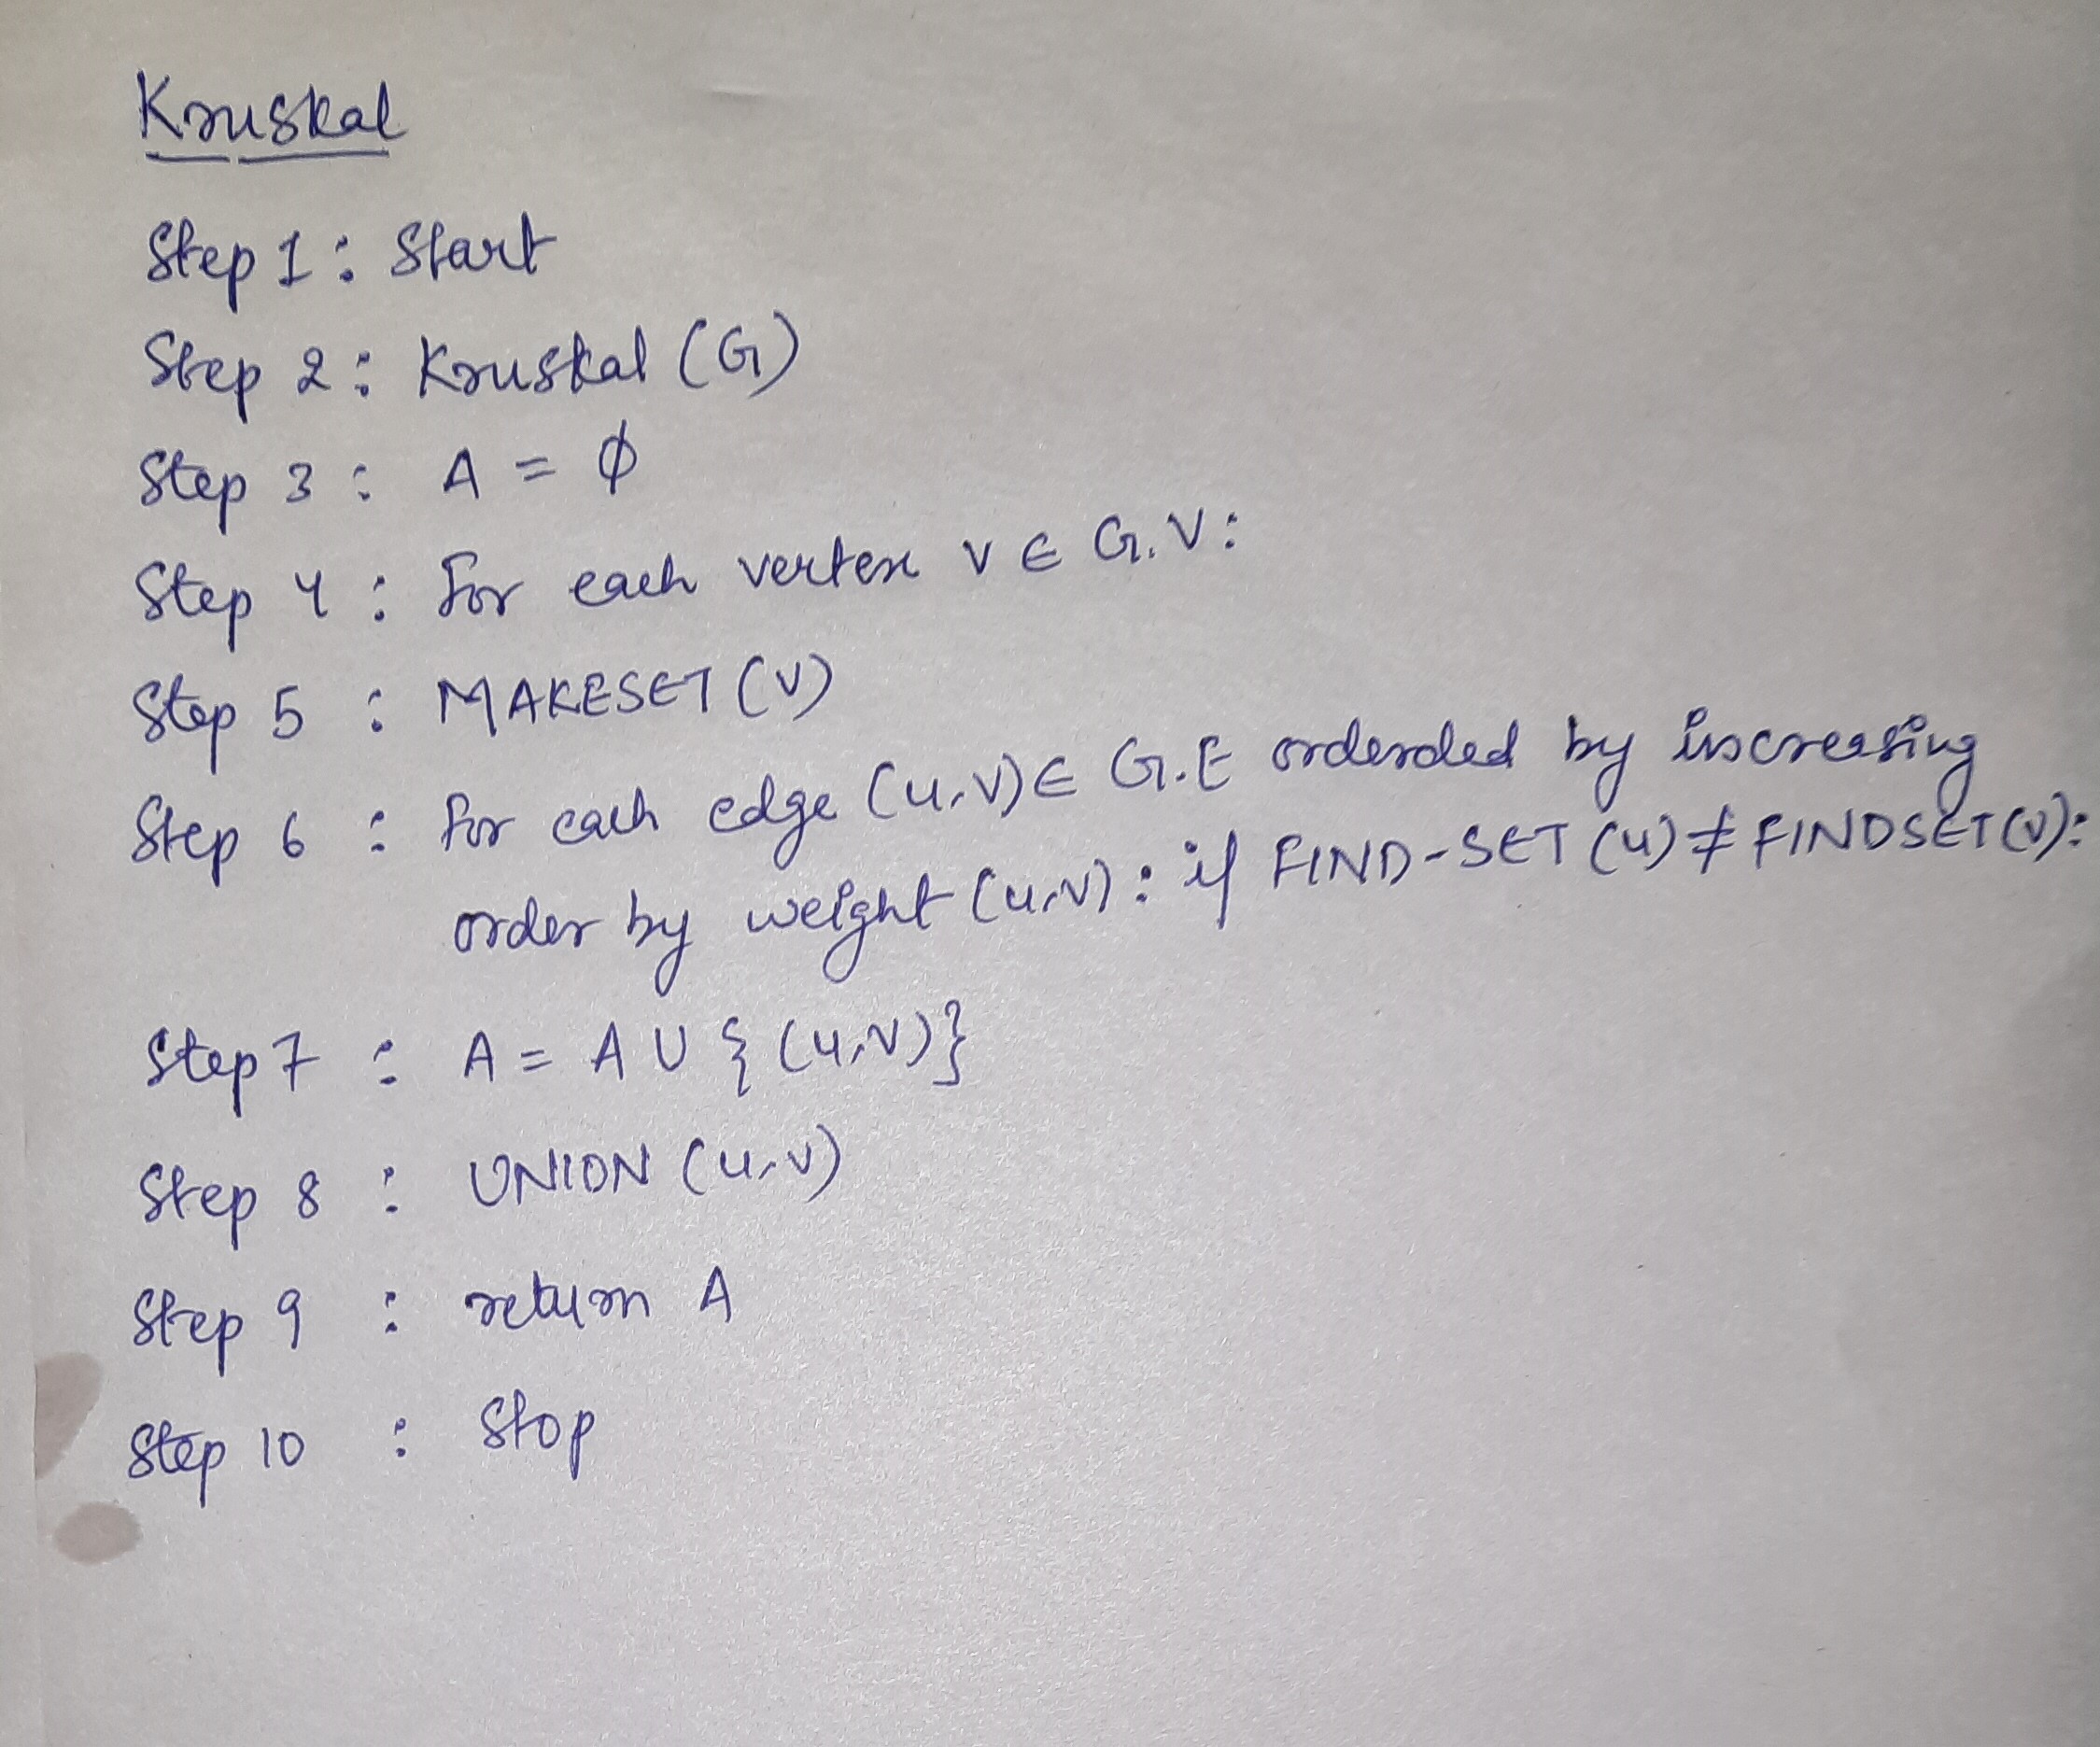 Kruskal
Step 1 : Start
Step 2 : Kruskal (G)
Step 3 : A = ∅
Step 4 : for each vertex v ∈ G.V:
Step 5 : MAKESET (V)
Step 6 : for each edge (u,v) ∈ G.E orderded by increasing
order by weight (u,v) : if FIND-SET (u) ≠ FINDSET(v):
Step 7 : A = A U { (u,v)}
Step 8 : UNION (u,v)
Step 9 : return A
Step 10 : Stop